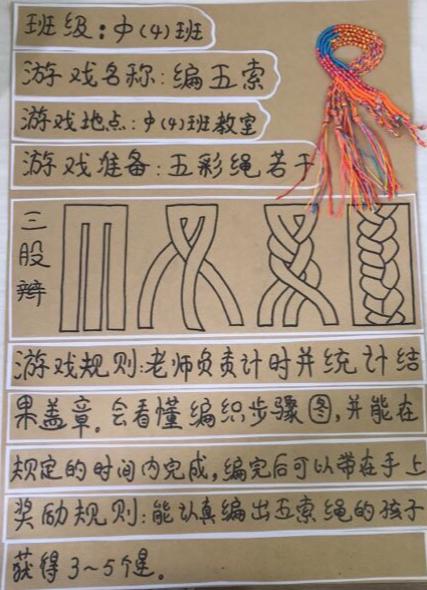 班级：中(4)班
游戏名称：编五索
游戏地点：中(4)班教室
游戏准备：五彩绳若干
三
股
辫
游戏规则：老师负责计时并统计结
果盖章。会看懂编织步骤图，并能在
规定的时间内完成，编完后可以带在手上
奖励规则：能认真编出五索绳的孩子
获得3～5个星。